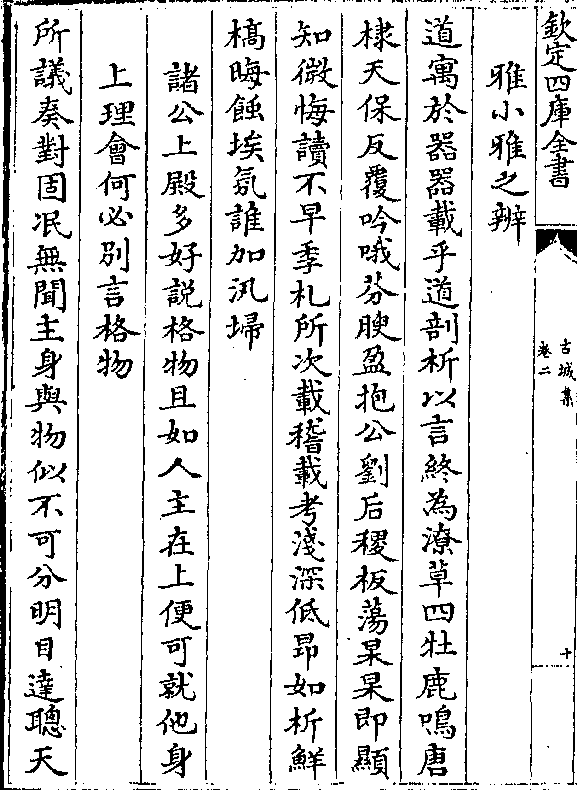 欽定四庫全書
古城集
卷二
十
雅小雅之辨
道寓於器器載乎道剖析以言終為潦草四牡鹿鳴唐
棣天保反覆吟哦芬腴盈抱公劉后稷板蕩杲杲即顯
知微悔讀不早季札所次載稽載考淺深低昂如析鮮
槁晦蝕埃氛誰加汛埽
諸公上殿多好說格物且如人主在上便可就他身
上理會何必別言格物
所議奏對固泯無聞主身與物似不可分明目達聰天